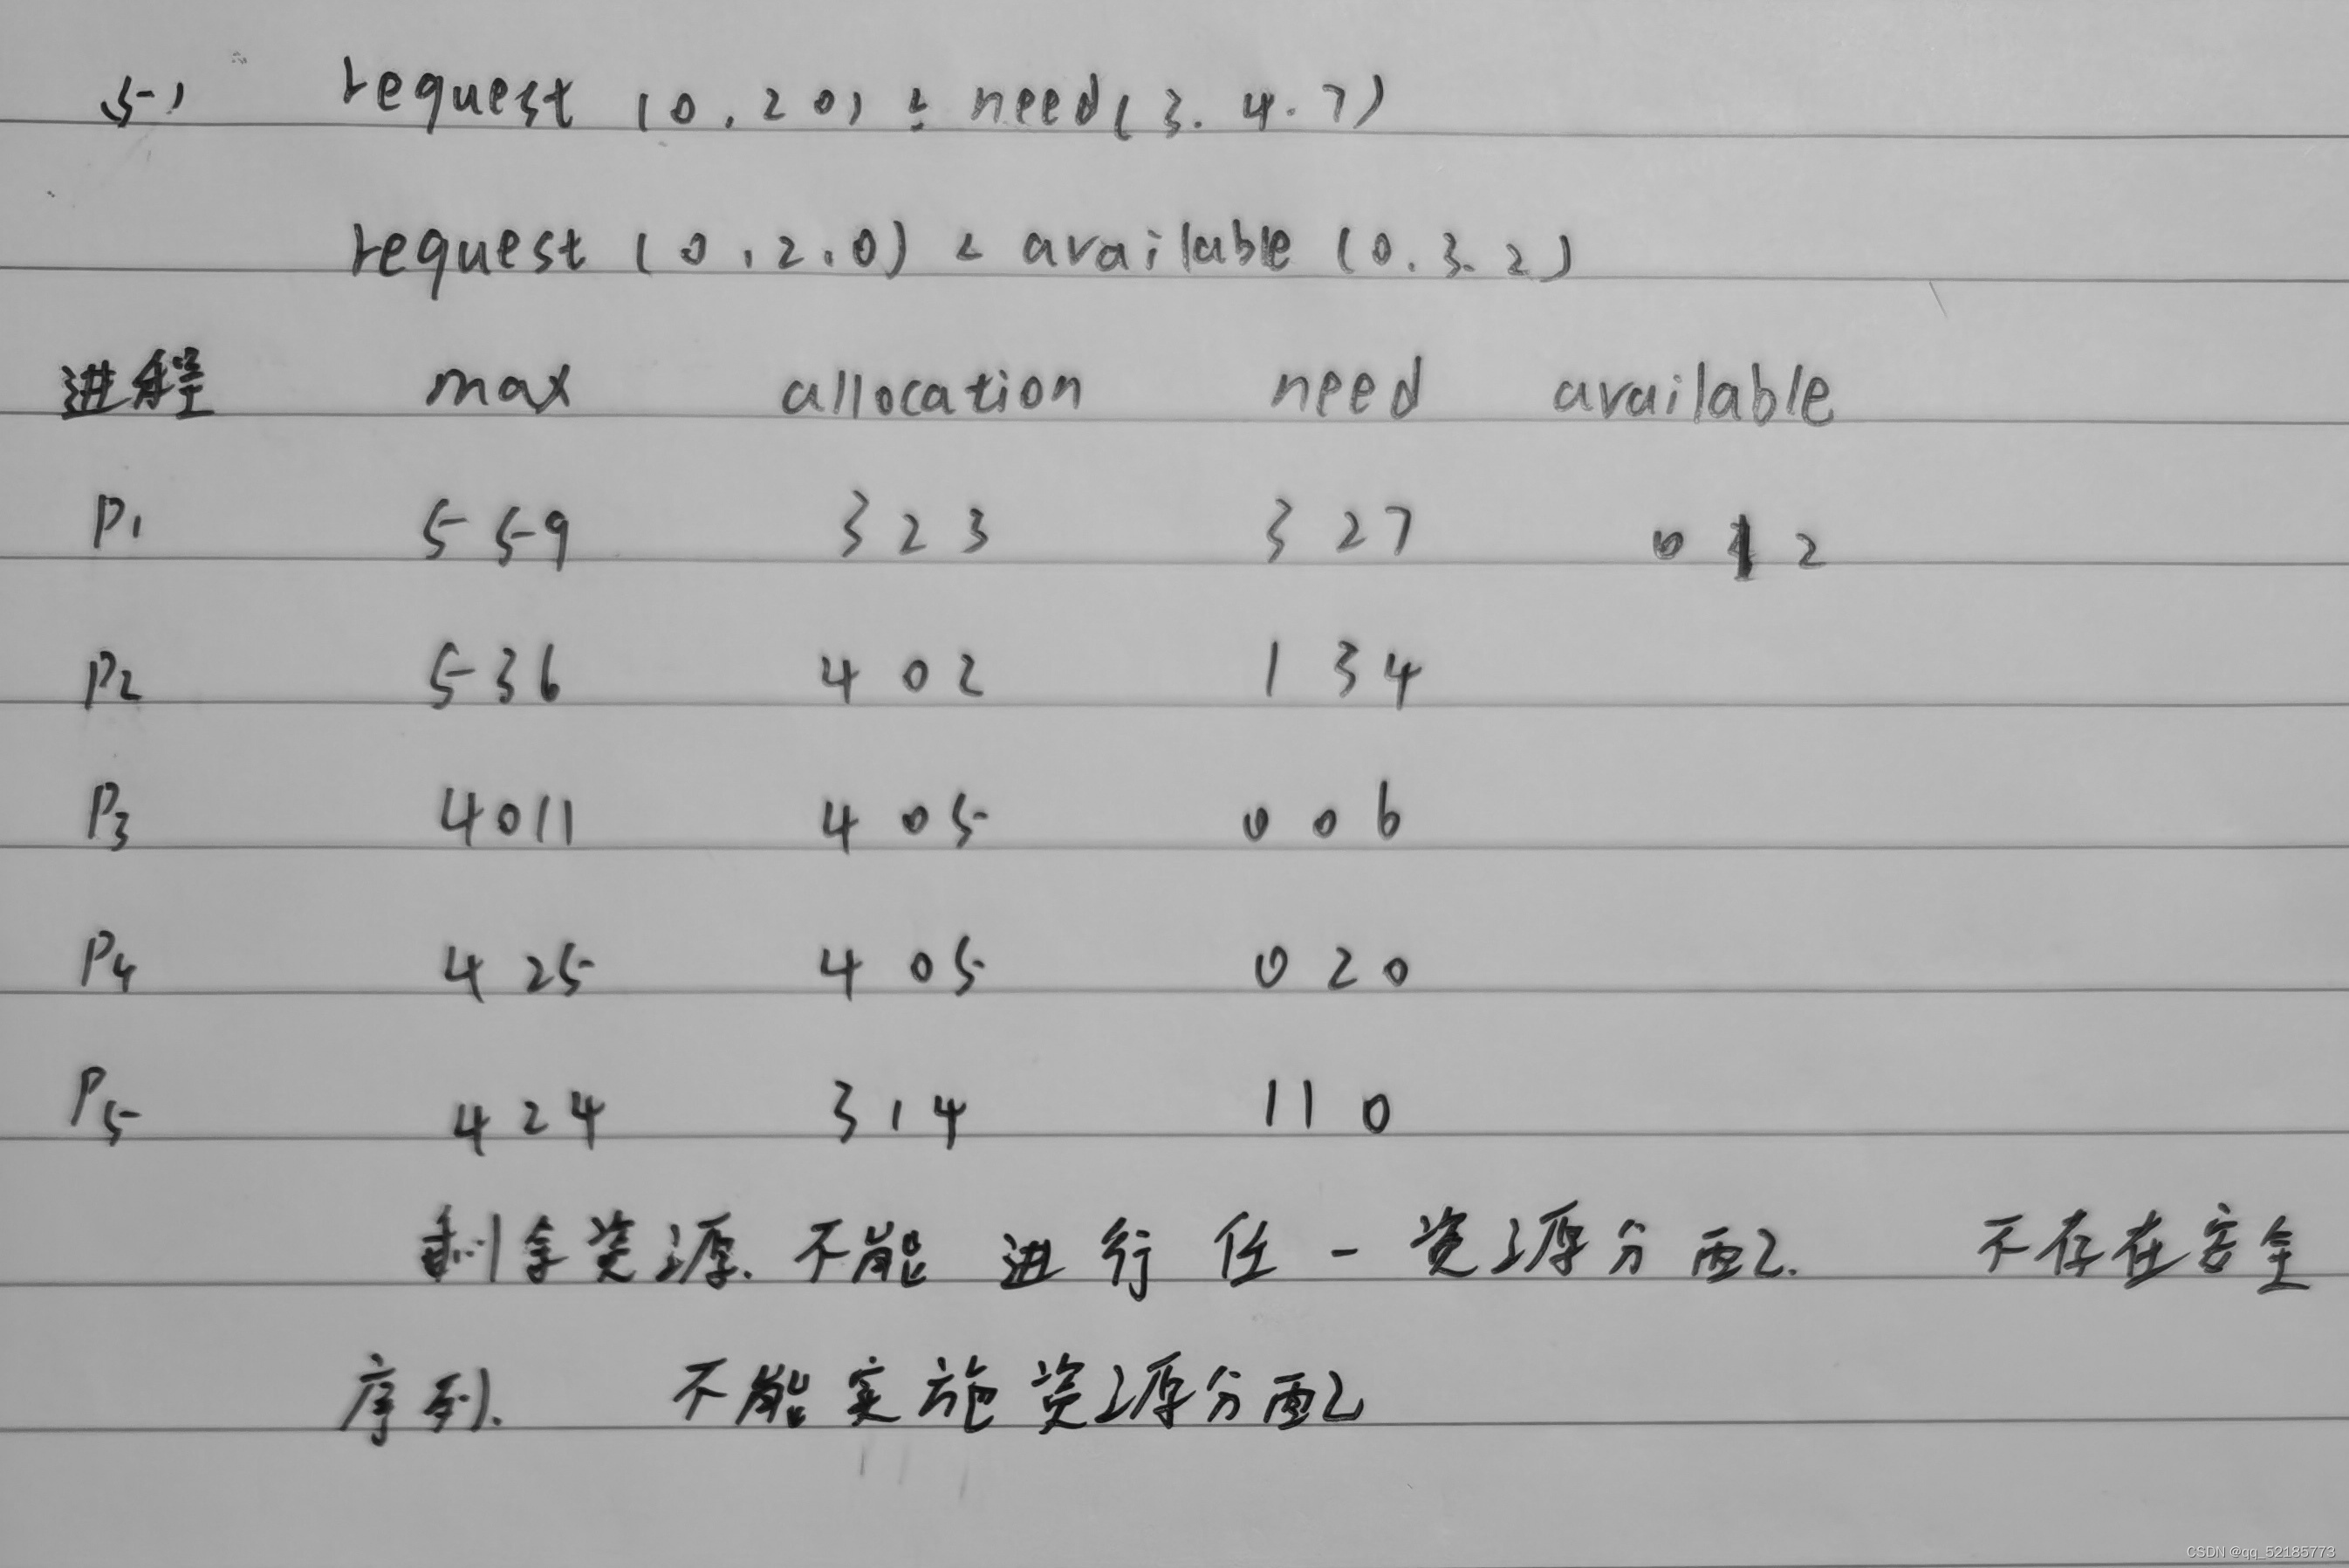 (5)
request (0,2,0) ≤ need(3.4.7)
request (0,2,0) < available (0.3.2)
进程 max allocation need available
P1 5 5 9 3 2 3 3 2 7 0 1 2
P2 5 3 6 4 0 2 1 3 4
P3 4 0 11 4 0 5 0 0 6
P4 4 2 5 4 0 5 0 2 0
P5 4 2 4 3 1 4 1 1 0
剩余资源.不能进行任一资源分配. 不存在安全
序列. 不能实施资源分配
CSDN @qq_52185773